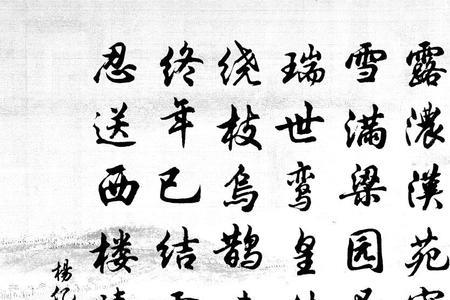 露濃漢苑
雪满梁园
瑞世鸾皇
绕枝乌鹊
终年已结
忍送西楼
楊